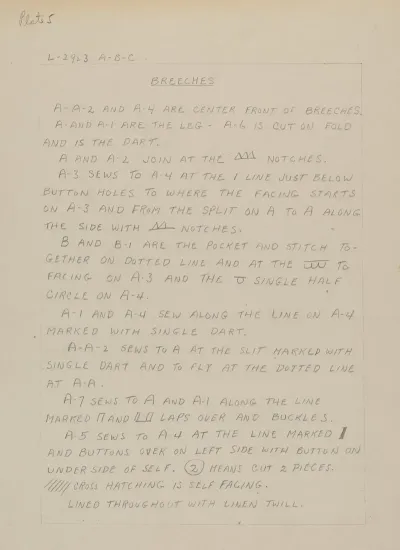 Plate 5
L-2923 A-B-C
BREECHES
A-A-2 AND A-4 ARE CENTER FRONT OF BREECHES.
A-AND A-1 ARE THE LEG - A-6 IS CUT ON FOLD
AND IS THE DART.
A AND A-2 JOIN AT THE NOTCHES.
A-3 SEWS TO A-4 AT THE 1 LINE JUST BELOW
BUTTON HOLES TO WHERE THE FACING STARTS
ON A-3 AND FROM THE SPLIT ON A TO A ALONG
THE SIDE WITH NOTCHES.
B AND B-1 ARE THE POCKET AND STITCH TO-
GETHER ON DOTTED LINE AND AT THE TO
FACING ON A-3 AND THE SINGLE HALF
CIRCLE ON A-4.
A-1 AND A-4 SEW ALONG THE LINE ON A-4
MARKED WITH SINGLE DART.
A-A-2 SEWS TO A AT THE SLIT MARKED WITH
SINGLE DART AND TO FLY AT THE DOTTED LINE
AT A-A.
A-7 SEWS TO A AND A-1 ALONG THE LINE
MARKED AND LAPS OVER AND BUCKLES.
A-5 SEWS TO A-4 AT THE LINE MARKED
AND BUTTONS OVER ON LEFT SIDE WITH BUTTON ON
UNDER SIDE OF SELF. 2 MEANS CUT 2 PIECES.
CROSS HATCHING IS SELF FACING.
LINED THROUGHOUT WITH LINEN TWILL.